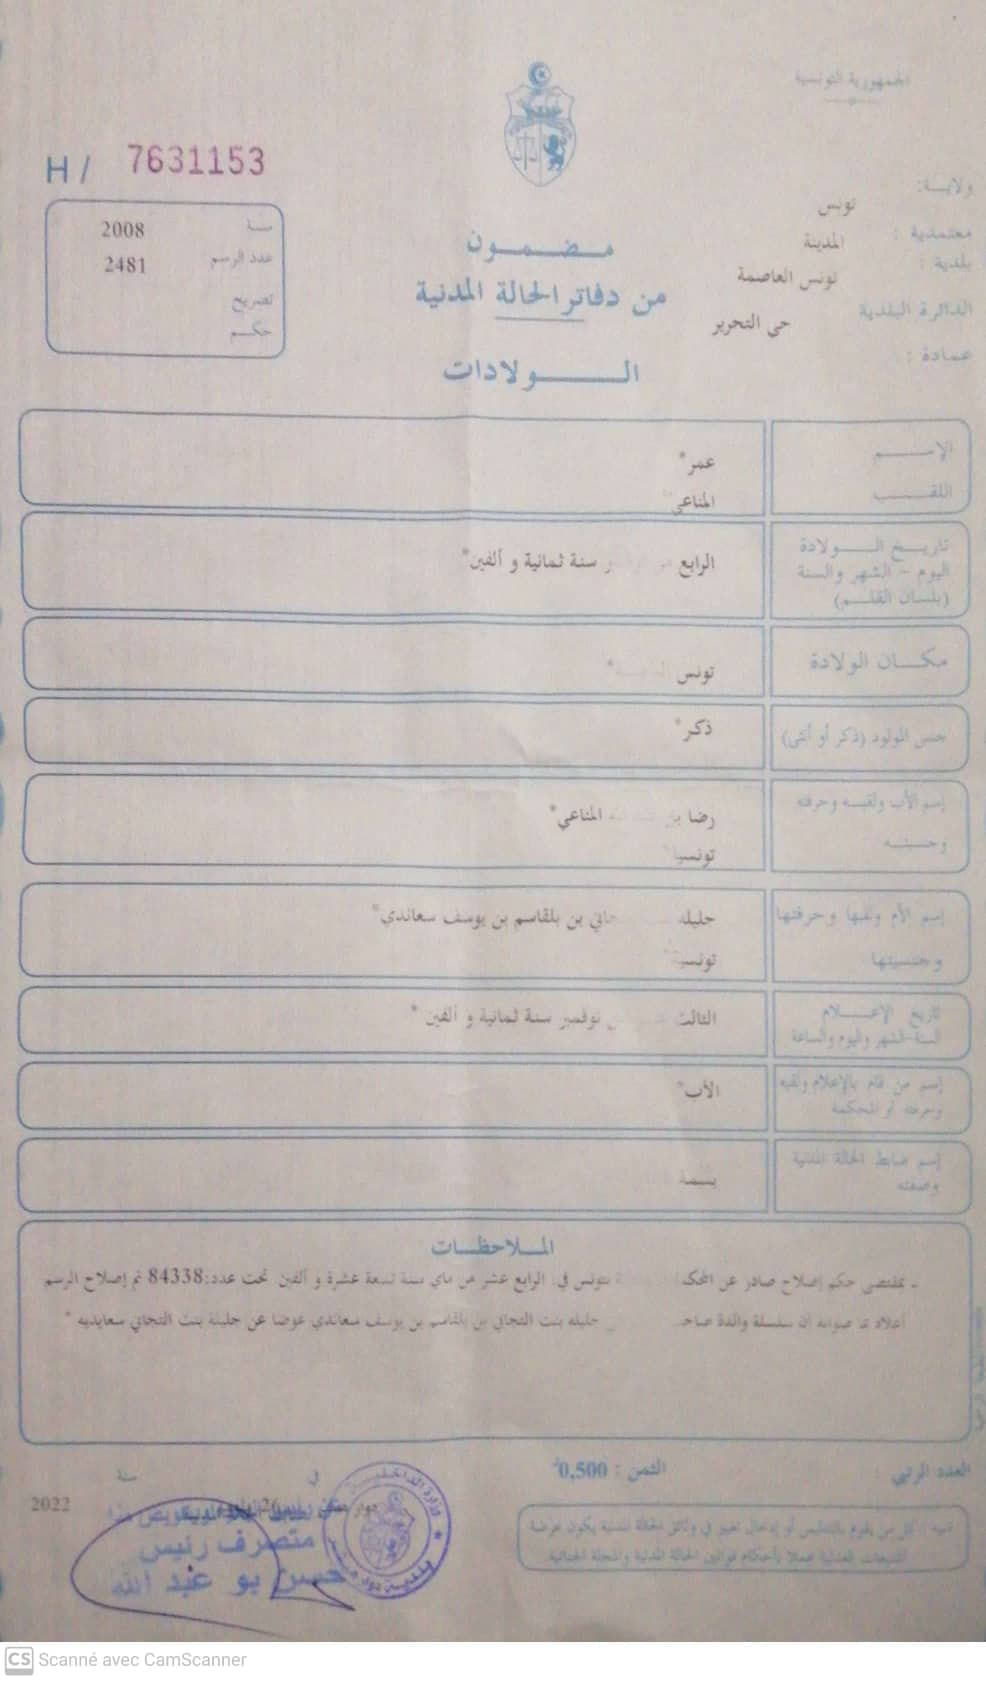 الجمهورية التونسية
H / 7631153
ولاية: تونس
معتمدية: المدينة
بلدية: تونس العاصمة
الدائرة البلدية حي التحرير
عمادة:
سنة 2008
عدد الرسم 2481
تصريح
حكم
مضمون
من دفاتر الحالة المدنية
الولادات
الإسم عمر*
اللقب المناعي
تاريخ الولادة
اليوم - الشهر والسنة
(بلسان القلم)
الرابع سنة ثمانية و ألفين*
مكان الولادة تونس *
جنس المولود (ذكر أو أنثى) ذكر*
إسم الأب ولقبه وحرفته رضا المناعي*
وجنسيته تونسية
إسم الأم ولقبها وحرفتها جليلة بن بلقاسم بن يوسف سعائدي*
وجنسيتها تونسية
تاريخ الإعلام
السنة-الشهر واليوم والساعة
الثالث نوفمبر سنة ثمانية و ألفين *
إسم من قام بالإعلام ولقبه
وحرفته أو المحكمة
الأب*
إسم ضابط الحالة المدنية
وصفته
بسمة
الملاحظات
ـ بمقتضى حكم إصلاح صادر عن بتونس في الرابع عشر من ماي سنة تسعة عشرة و ألفين تحت عدد:84338 تم إصلاح الرسم
أعلاه بما صوابه أن سلسلة والدة جليلة بنت التجاني بن بلقاسم بن يوسف سعائدي عوضا عن جليلة بنت التجاني سعايديه *
العدد الرتبي :
الثمن : 0,500د
في
سنة 2022
تنبيه : كل من يقوم بالتدليس أو إدخال تغيير في وثائق الحالة المدنية يكون عرضة
للتتبعات العدلية عملا بأحكام قوانين الحالة المدنية والمجلة الجنائية
وزارة الداخلية
متصرف رئيس
حسن بو عبد الله
CS Scanné avec CamScanner